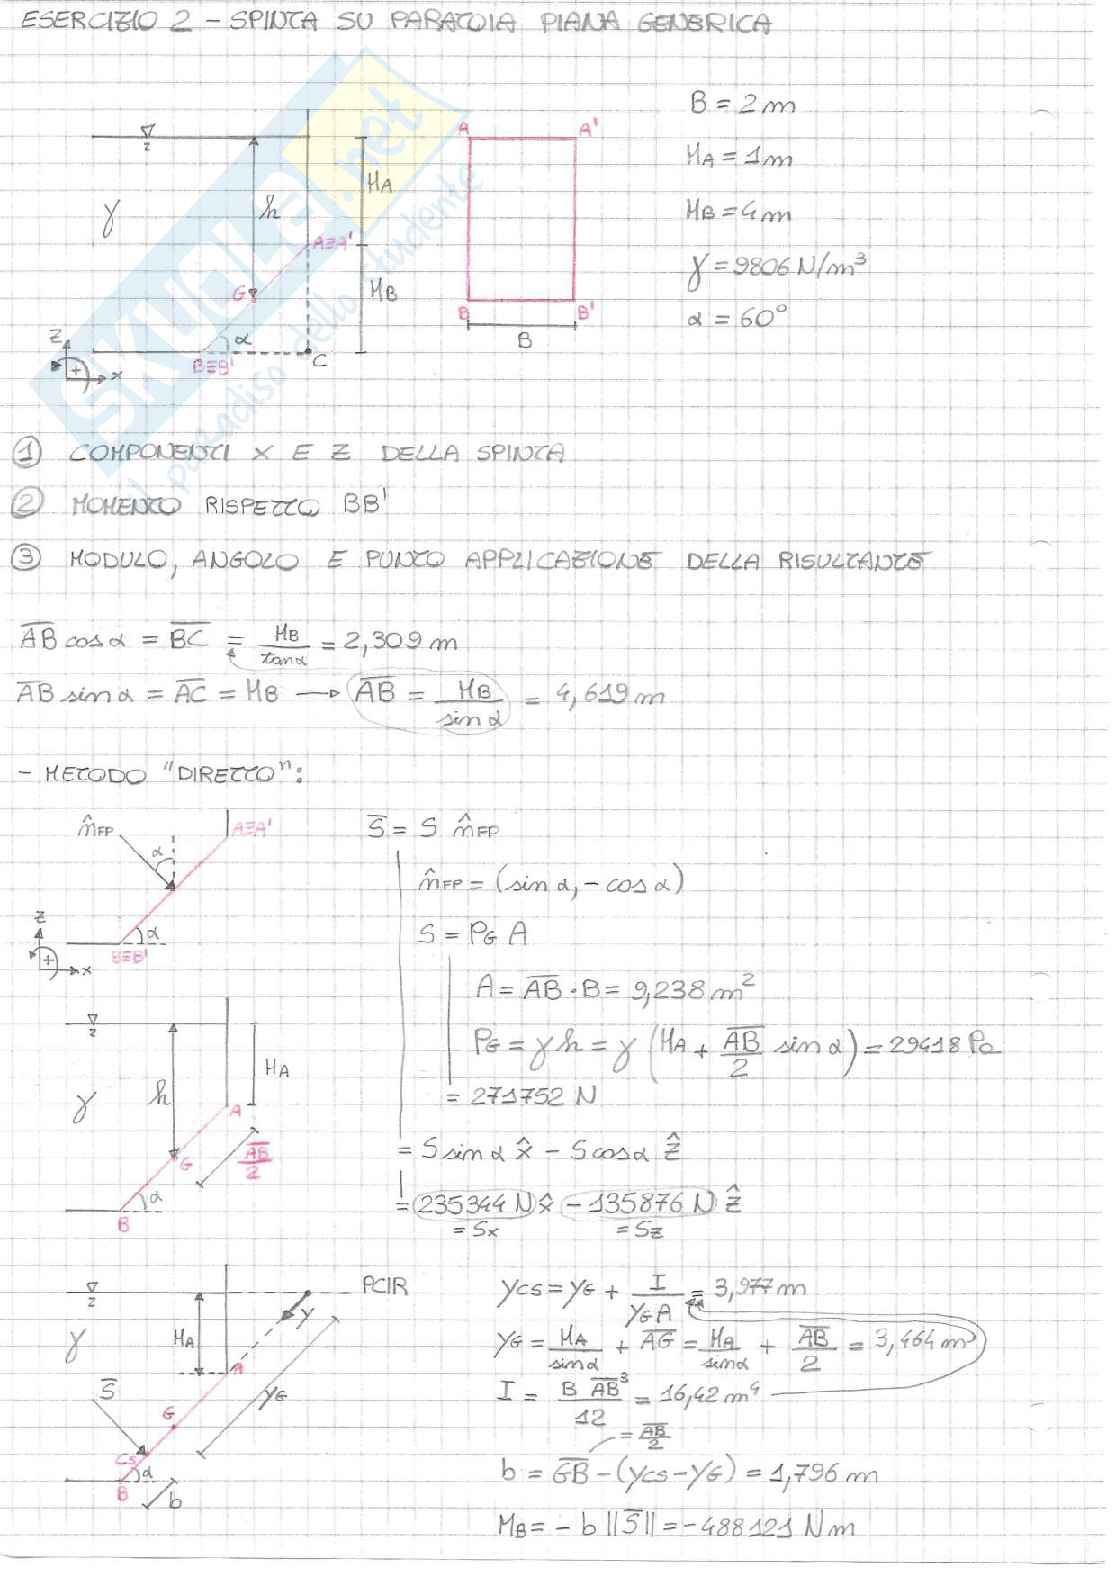 ESERCIZIO 2 - SPINTA SU PARATOIA PIANA GENERICA
B = 2 m
HA = 1 m
HB = 4 m
γ = 9806 N/m³
α = 60°
γ
h
HA
HB
A≡A'
G
α
B≡B'
C
z
x
+
A
A'
B
B'
B
SKUOLA.net
il paradiso dello studente
① COMPONENTI X E Z DELLA SPINTA
② MOMENTO RISPETTO BB'
③ MODULO, ANGOLO E PUNTO APPLICAZIONE DELLA RISULTANTE
AB cos α = BC = HB/tan α = 2,309 m
AB sin α = AC = HB → AB = HB/sin α = 4,619 m
- METODO "DIRETTO":
n̂FP
α
A≡A'
z
α
B≡B'
+
x
S = S n̂FP
n̂FP = (sin α, - cos α)
S = PG A
A = AB · B = 9,238 m²
PG = γ h = γ (HA + AB/2 sin α) = 29418 Pa
= 271752 N
= S sin α x̂ - S cos α ẑ
= 235344 N x̂ - 135876 N ẑ
= Sx = Sz
γ
h
HA
A
AB/2
G
α
B
PCIR
γ
HA
y
A
S
yG
G
CS
α
B
b
yCS = yG + I/(yG A) = 3,977 m
yG = HA/sin α + AG = HA/sin α + AB/2 = 3,464 m
I = B AB³/12 = 16,42 m⁴
= AB/2
b = GB - (yCS - yG) = 1,796 m
MB = - b ||S|| = - 488121 N m